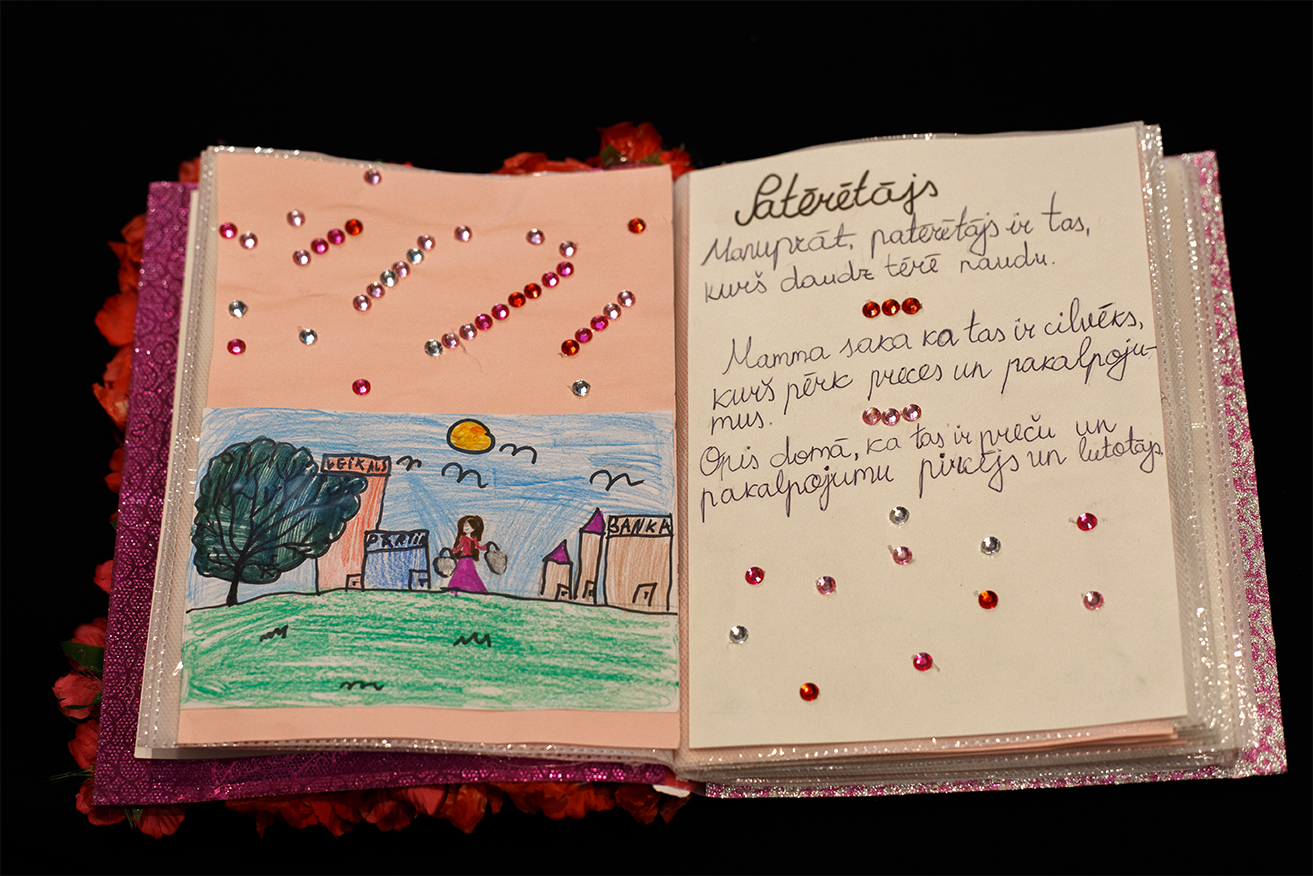 VEIKALS
PĒRTU
BANKA
Patērētājs
Manuprāt, patērētājs ir tas,
kurš daudz tērē naudu.
Mamma saka ka tas ir cilvēks,
kurš pērk preces un pakalpoju-
mus.
Opis domā, ka tas ir preču un
pakalpojumu pircējs un lutotājs.